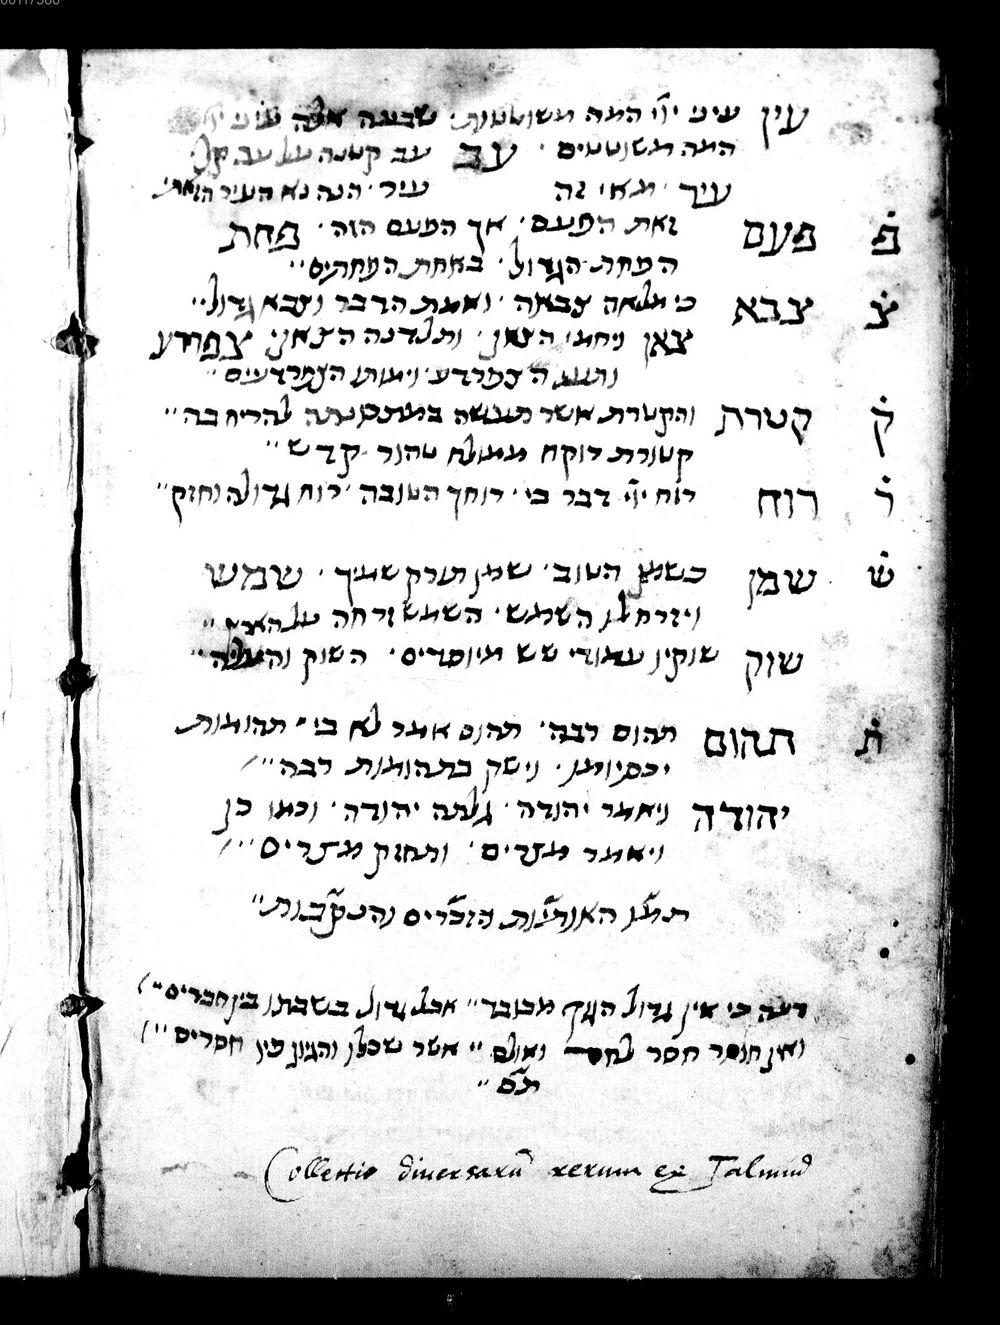 עין עיני ייי המה משוטטות׳ שבעה אלה עיני
המה משוטטים ׳ עב עב קטנה על עב קל׳
עיר ׳ מאי זה עיר׳ הנה נא העיר הזאת׳
פ פעם זאת הפעם׳ אך הפעם הזה׳ פחת
הפחת הגדול׳ באחת הפחתים״
צ צבא כי מלאה צבאה׳ ואמת הדבר וצבא גדול״
צאן ניחמי הצאן׳ ותלדנה הצאן׳ צפרדע
ותעל הצפרדע׳ וימותו הצפרדעים״
ק קטרת והקטרת אשר תעשה במתכונתה להריח בה״
קטורת רוקח ממולח טהור קדש״
ר רוח רוח ייי דבר בי׳ רוחך הטובה׳ רוח גדולה וחזק״
ש שמן כשמן הטוב׳ שמן תורק שמיך׳ שמש
ויזרח לו השמש׳ השמש זרחה על הארץ״
שוק שוקיו עמודי שש מיוסדים׳ השוק והעליה״
ת תהום תהום רבה׳ תהום אמר לא בי״ תהומות
יכסיומו׳ וישק בתהומות רבה״
יהודה ויאמר יהודה׳ גלתה יהודה׳ וכמו כן
ויאמר מצרים׳ ותחזק מצרים״
תמו האותיות הזכרים והנקבות״
דעה כי אין גדול הנזק מכובד״ אבל גדול בשבתו בין חברים״
ואין חוסר חסר לחסר ואולם״ אשר שכלו והגיון כיון חסרים״
תם״
Collectio diversarũ rerum ex Talmud